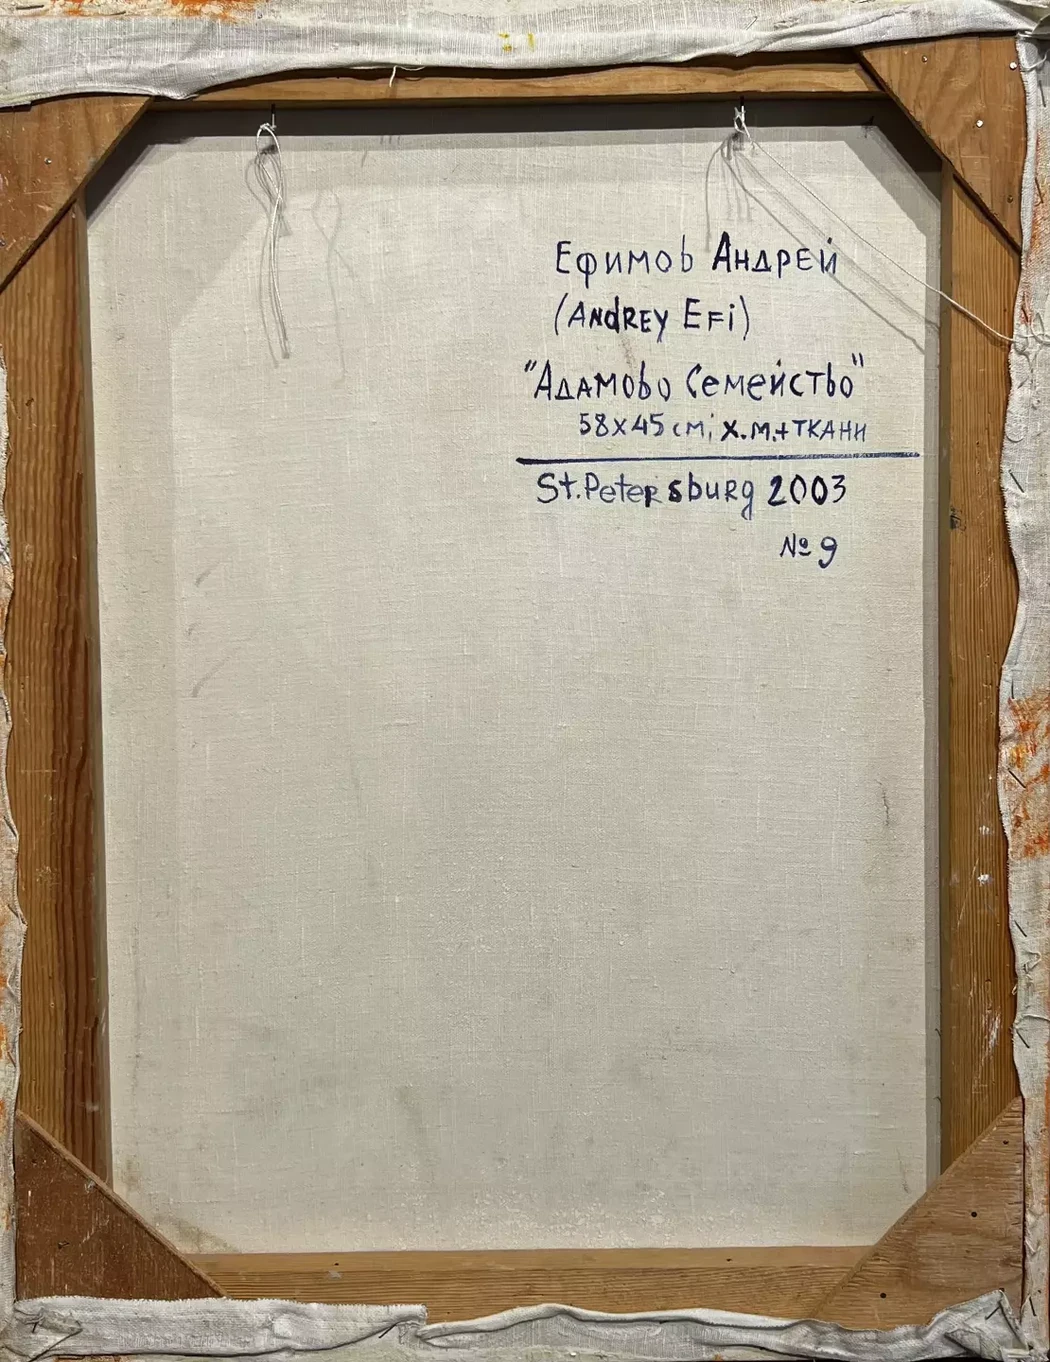 Ефимов Андрей
(Andrey Efi)
"Адамово Семейство"
58х45 см, х.м.+ткани
St.Petersburg 2003
№ 9